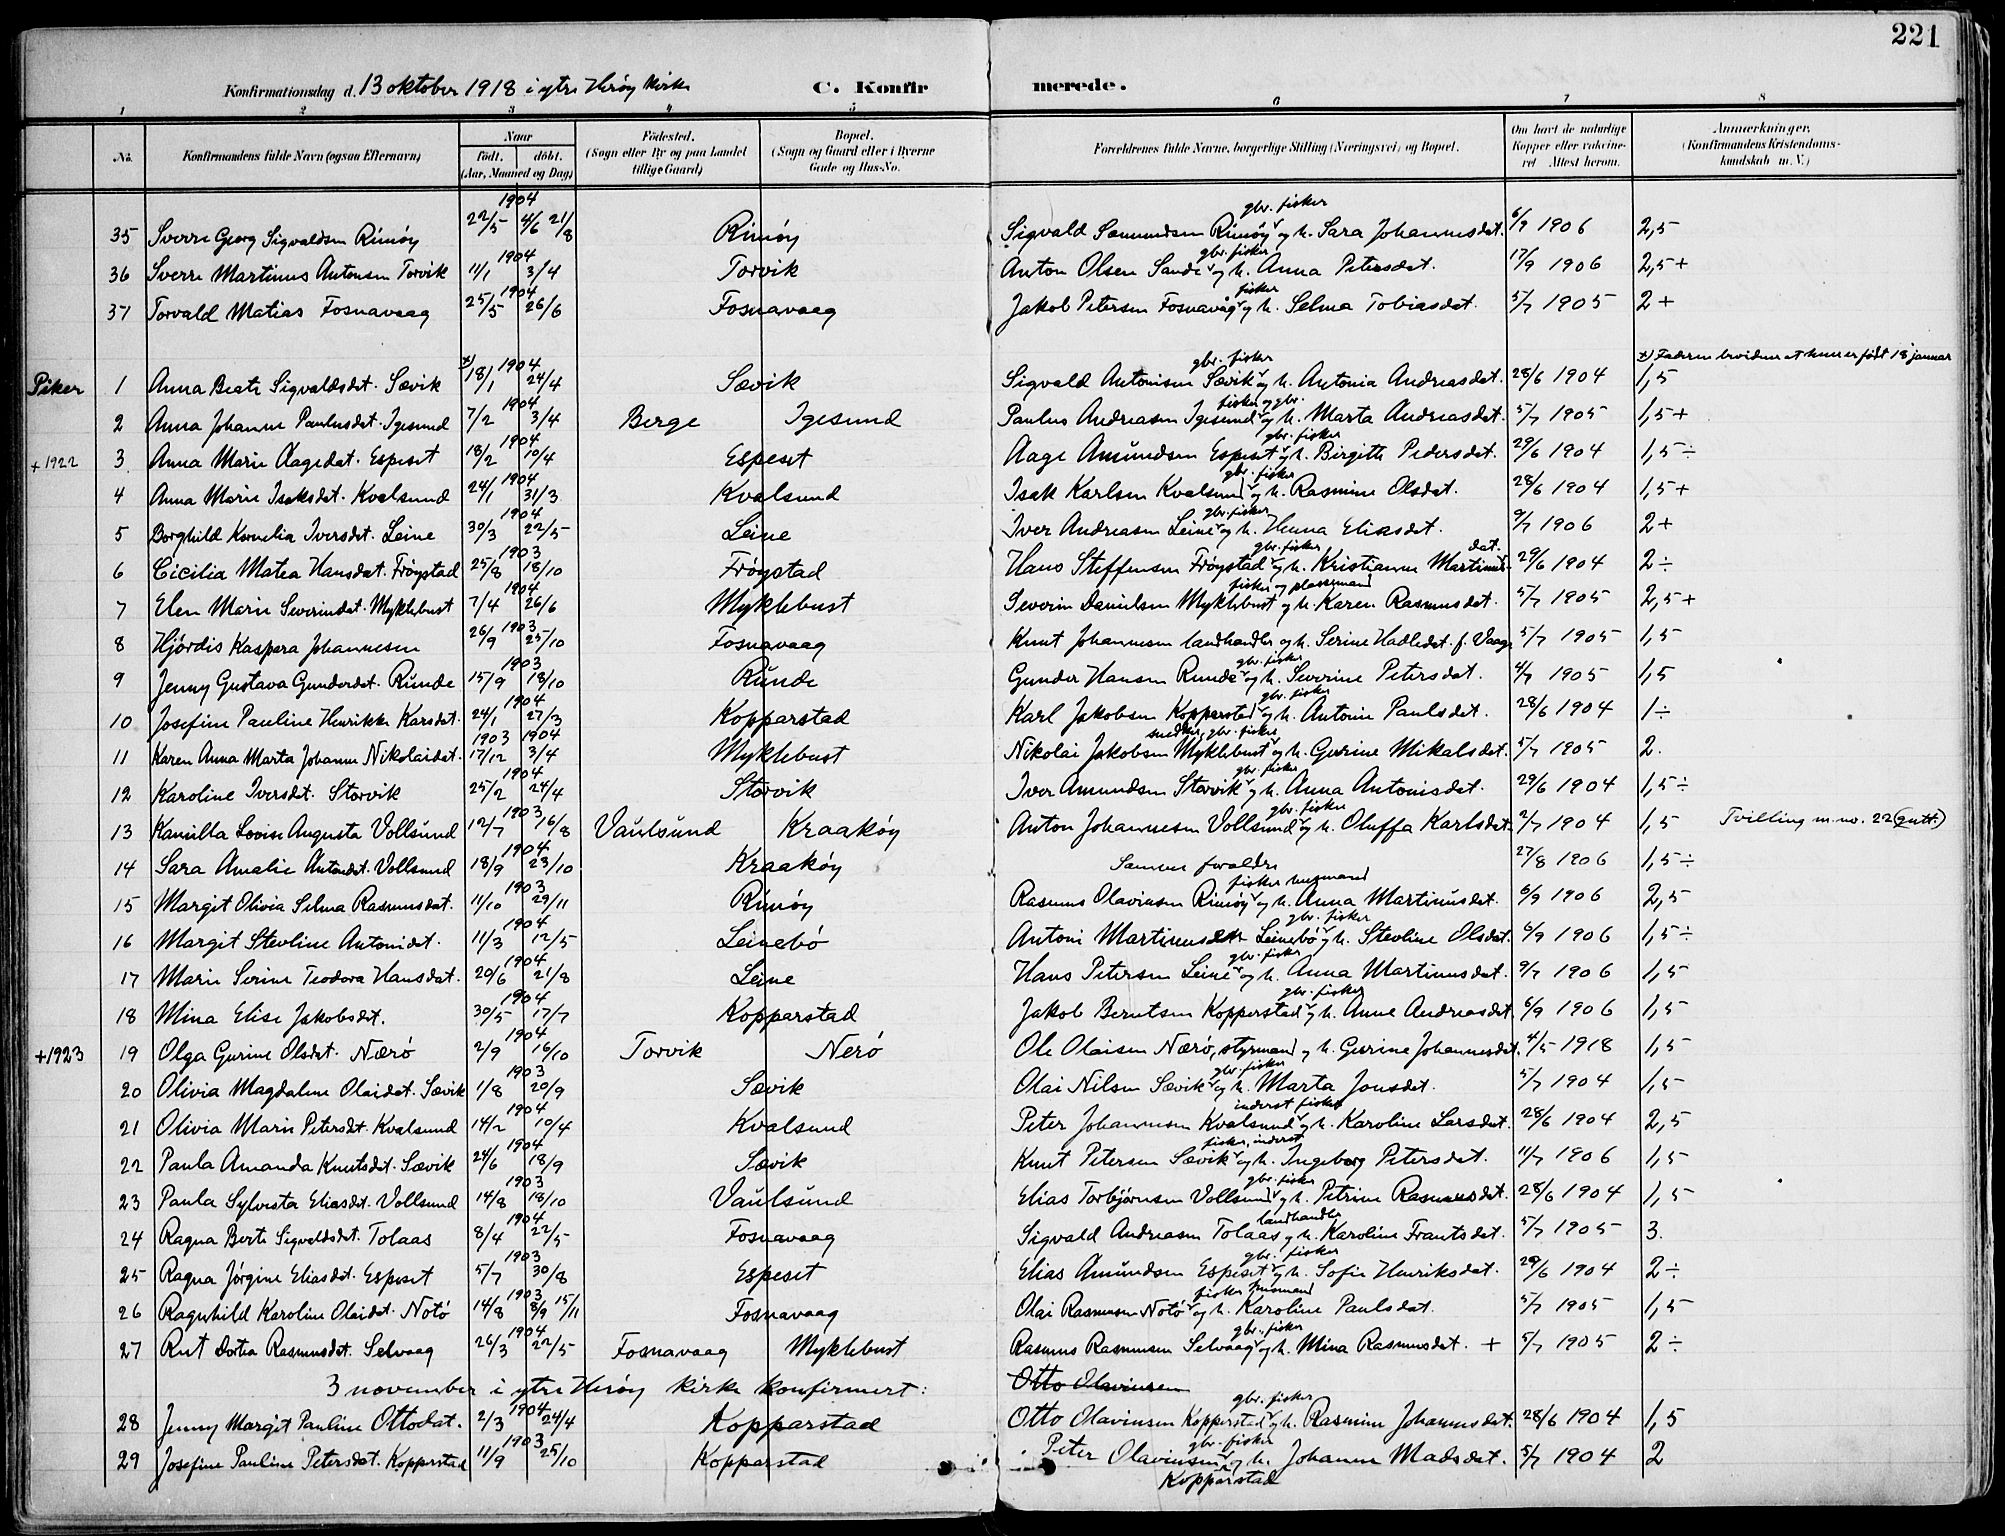 221
Konfirmationsdag d. 13 oktober 1918 i ytre Herøy kirke C. Konfirmerede.
1 2 3 4 5 6 7 8
No. Konfirmandens fulde Navn (ogsaa Efternavn) Naar født. døbt. (Aar, Maaned og Dag) Fødested. (Sogn eller By og paa Landet tillige Gaard) Bopæl. (Sogn og Gaard eller i Byerne Gade og Hus-No. Forældrenes fulde Navne, borgerlige Stilling (Næringsvei) og Bopæl. Om havt de naturlige Kopper eller vakcineret Attest herom. Anmærkninger, (Konfirmandens Kristendomskundskab m. V.)
35 Sverre Georg Sigvaldsen Rimøy 1904 22/5 4/6 21/8 Rimøy Sigvald Samundsen Rimøy gbr. fisker og h. Sara Johannesdat. 6/9 1906 2,5
36 Sverre Martinus Antonsen Torvik 1904 11/1 3/4 Torvik Anton Olsen Sande gbr. fisker og h. Anna Petersdat. 17/9 1906 2,5+
37 Torvald Matias Fosnavaag 1904 25/5 26/6 Fosnavaag Jakob Petersen Fosnavåg fisker og h. Selma Tobiasdat. 5/7 1905 2+
x) Faderen bevidner at hun er født 18 januar
Piker 1 Anna Beate Sigvaldsdat. Sævik x) 1904 18/1 24/4 Sævik Sigvald Antonisen Sævik gbr. fisker og h. Antonia Andreasdat. 28/6 1904 1,5
2 Anna Johanne Paulusdat. Igesund 1904 7/2 3/4 Berge Igesund Paulus Andreasen Igesund fisker og gbr. og h. Marta Andreasdat. 5/7 1905 1,5+
+1922 3 Anna Marie Aagedat. Espeset 1904 18/2 10/4 Espeset Aage Amundsen Espeset gbr. fisker og h. Birgitte Pedersdat. 29/6 1904 1,5÷
4 Anna Marie Isaksdat. Kvalsund 1904 24/1 31/3 Kvalsund Isak Karlsen Kvalsund gbr. fisker og h. Rasmine Olsdat. 28/6 1904 1,5+
5 Borghild Kornelia Iversdat. Leine 1904 30/3 22/5 Leine Iver Andreasen Leine gbr. fisker og h. Hanna Eliasdat. 9/7 1906 2+
6 Cicilia Matea Hansdat. Frøystad 1903 25/8 18/10 Frøystad Hans Steffensen Frøystad gbr. fisker og h. Kristianne Martinusdat. 29/6 1904 2÷
7 Elen Marie Severindat. Myklebust 1904 7/4 26/6 Myklebust Severin Danielsen Myklebust fisker og plassmand og h. Karen Rasmusdat. 5/7 1905 2,5+
8 Hjørdis Kaspara Johannesen 1903 26/9 25/10 Fosnavaag Knut Johannesen landhandler og h. Serine Hadledat. f. Vaage 5/7 1905 1,5
9 Jenny Gustava Gunderdat. Runde 1903 15/9 18/10 Runde Gunder Hansen Runde gbr. fisker og h. Severine Petersdat. 4/7 1905 1,5
10 Josefine Pauline Henrikke Karsdat. 1904 24/1 27/3 Kopparstad Karl Jakobsen Kopperstad gbr. fisker og h. Antonie Paulsdat. 28/6 1904 1÷
11 Karen Anna Marta Johanne Nikolaidat. 1903 1904 17/12 3/4 Myklebust Nikolai Jakobsen Myklebust snedker, gbr. fisker og h. Gurine Mikalsdat. 5/7 1905 2.
12 Karoline Iversdat. Storvik 1904 25/2 24/4 Storvik Iver Amundsen Storvik gbr. fisker og h. Anna Antonisdat. 29/6 1904 1,5÷
13 Kamilla Lovise Augusta Vollsund 1903 12/7 16/8 Vaulsund Kraakøy Anton Johannesen Vollsund gbr. fisker og h. Oluffa Karlsdat. 2/7 1904 1,5 Tvilling m. no. 22 (gutt.)
14 Sara Amalie Antondat. Vollsund 1904 18/9 23/10 Kraakøy Samme foreldre 27/8 1906 1,5÷
15 Margit Olivia Selma Rasmusdat. 1903 11/10 29/11 Rimøy Rasmus Olavinsen Rimøy fisker husmand og h. Anna Martinusdat. 6/9 1906 2,5
16 Margit Stevline Antonidat. 1904 11/3 12/5 Leinebø Antoni Martinusen Leinebø gbr. fisker og h. Stevline Olsdat. 6/9 1906 1,5÷
17 Marie Serine Teodora Hansdat. 1904 20/6 21/8 Leine Hans Petersen Leine gbr. fisker og h. Anna Martinusdat. 9/7 1906 1,5
18 Mina Elise Jakobsdat. 1904 30/5 17/7 Kopparstad Jakob Berntsen Kopperstad gbr. fisker og h. Anne Andreasdat. 6/9 1906 1,5
+1923 19 Olga Gurine Olsdat. Nærø 1904 2/9 16/10 Torvik Nerø Ole Olaisen Nærø, styrmand og h. Gurine Johannesdat. 4/5 1918 1,5
20 Olivia Magdalene Olaidat. Sævik 1903 1/8 20/9 Sævik Olai Nilsen Sævik gbr. fisker og h. Marta Jonsdat. 5/7 1904 1,5
21 Olivia Marie Petersdt. Kvalsund 1904 14/2 10/4 Kvalsund Peter Johannesen Kvalsund inderst fisker og h. Karoline Larsdat. 28/6 1904 2,5
22 Paula Amanda Knutsdat. Sævik 1904 24/6 18/9 Sævik Knut Petersen Sævik fisker, inderst og h. Ingeborg Petersdat. 11/7 1906 1,5
23 Paula Sylvesta Eliasdat. Vollsund 1903 14/8 18/10 Vaulsund Elias Torbjørnsen Vollsund gbr. fisker og h. Petrine Rasmusdat. 28/6 1904 1,5
24 Ragna Berte Sigvaldsdat. Tolaas 1904 8/4 22/5 Fosnavaag Sigvald Andreasen Tolaas landhandler og h. Karoline Frantsdat. 5/7 1905 3.
25 Ragna Jørgine Eliasdat. Espeset 1903 5/7 30/8 Espeset Elias Amundsen Espeset gbr. fisker og h. Sofie Henriksdat. 29/6 1904 2÷
26 Ragnhild Karoline Olaidat. Notø 1903 14/8 8/9 15/11 Fosnavaag Olai Rasmusen Notø fisker husmand og h. Karoline Paulsdat. 5/7 1905 1,5
27 Rut Dortea Rasmusdat. Selvaag 1904 26/3 22/5 Fosnavaag Myklebust Rasmus Rasmusen Selvaag gbr. fisker og h. Mina Rasmusdat. + 5/7 1905 2÷
3 november i ytre Herøy kirke konfirmert: Otto Olavinsen
28 Jenny Margit Pauline Ottodat. 1904 2/3 24/4 Kopparstad Otto Olavinsen Kopperstad gbr. fisker og h. Rasmine Johannesdat. 28/6 1904 1,5
29 Josefine Pauline Petersdat. Kopperstad 1903 11/9 25/10 Kopparstad Peter Olavinsen gbr. fisker og h. Johanne Madsdat. 5/7 1904 2
Kopparstad